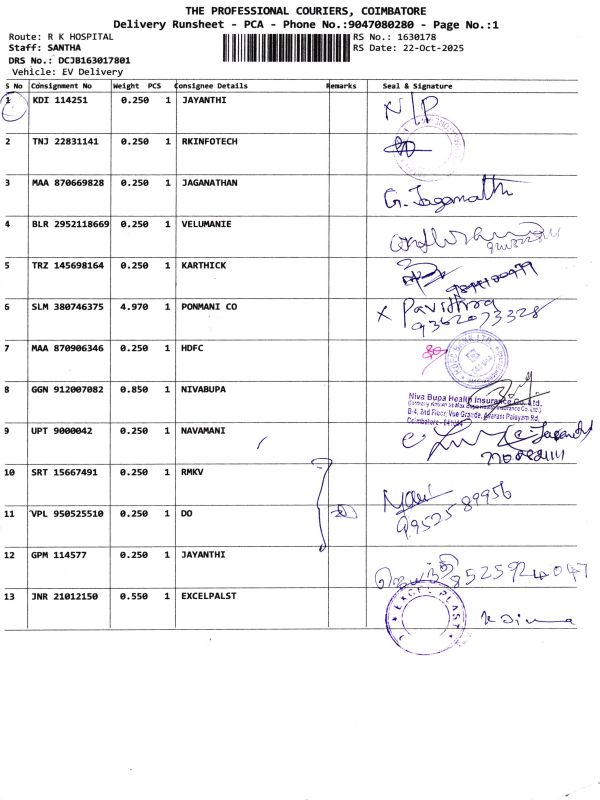 THE PROFESSIONAL COURIERS, COIMBATORE
Delivery Runsheet - PCA - Phone No.:9047080280 - Page No.:1
Route: R K HOSPITAL
RS No.: 1630178
Staff: SANTHA
RS Date: 22-Oct-2025
DRS No.: DCJB163017801
Vehicle: EV Delivery
S No Consignment No Weight PCS Consignee Details Remarks Seal & Signature
1 KDI 114251 0.250 1 JAYANTHI N/P
2 TNJ 22831141 0.250 1 RKINFOTECH
3 MAA 870669828 0.250 1 JAGANATHAN G. Jaganath
4 BLR 2952118669 0.250 1 VELUMANIE
5 TRZ 145698164 0.250 1 KARTHICK
6 SLM 380746375 4.970 1 PONMANI CO x Pavithra
9362073328
7 MAA 870906346 0.250 1 HDFC
HDFC BANK LTD.
8 GGN 912007082 0.850 1 NIVABUPA
Niva Bupa Health Insurance Co. Ltd.
(formerly Known as Max Bupa Health Insurance Co. Ltd.)
B-4, 2nd Floor, Vue Grande,
Coimbatore - 641002
9 UPT 9000042 0.250 1 NAVAMANI
10 SRT 15667491 0.250 1 RMKV
11 VPL 950525510 0.250 1 DO
9952589956
12 GPM 114577 0.250 1 JAYANTHI ஜெயந்தி 8525924047
13 JNR 21012150 0.550 1 EXCELPALST
EXCEL PLAST